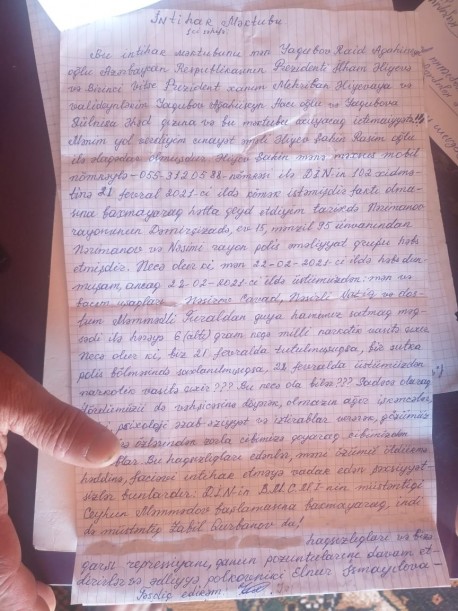 İntihar Məktubu
Bu intihar məktubunu mən Yaqubov Raid Ağahüseyn
oğlu Azərbaycan Respublikasının Prezidenti İlham Əliyevə
və Birinci Vitse Prezident xanım Mehriban Əliyevaya və
valideynlərim Yaqubov Ağahüseyn Hacı oğlu və Yaqubova
qızına və bu məktubu oxuyacaq ictimaiyyətə
Mənim yol verdiyim cinayət işi Əliyev Şahin Rasim oğlu
ilə əlaqədar olmuşdur Əliyev Şahin mənə məxsus mobil
nömrəsi ilə DİN-in 102 xidmə-
tinə 21 fevral 2021-ci ildə kömək istəmişdir faktı olma-
sına baxmayaraq hətta qeyd etdiyim tarixdə Nərimanov
rayonunun Dəmirçizadə, ev 15, mənzil 95 ünvanından
Nərimanov və Nəsimi rayon polis əməliyyat qrupu həbs
etmişdir. Necə olur ki mən 22-02-2021-ci ildə həbs olun-
muşam, ancaq 22-02-2021-ci ildə üstümüzdən: mən və
Nəsirov Cavad, və dos-
tum Məmmədli Turaldan guya hamımız satmaq məq-
sədi ilə hərəyə 6 (altı) qram necə milli narkotik vasitə çıxır
Necə olur ki, biz 21 fevralda tutulmuşuqsa, bir sutka
polis bölməsində saxlanılmışıqsa, 22 fevralda üstümüzdən
narkotik vasitə çıxır??? Bu necə ola bilər???
və vəhşicəsinə döyərək, olmazın ağır işgəncələr,
psixoloji əzab-əziyyət və iztirablar verərək, gözümüz
özlərindən zorla cibimizə qoyaraq cibimizdən
Bu haqsızlıqları edənlər, məni özümü öldürmə
həddinə, faciəvi intihar etməyə vadar edən şəxsiyyət-
sizlər bunlardır: DİN-in B.N.C.M.İ-nin müstəntiqi
Ceyhun Məmmədov başlamasına baxmayaraq, indi
də müstəntiq Qurbanov da!
haqsızlıqları və bizə
qarşı repressiyanı, qanun pozuntularını davam et-
dirirlər və ədliyyə polkovniki Elnur İsmayılova-
Təsdiq edirəm!